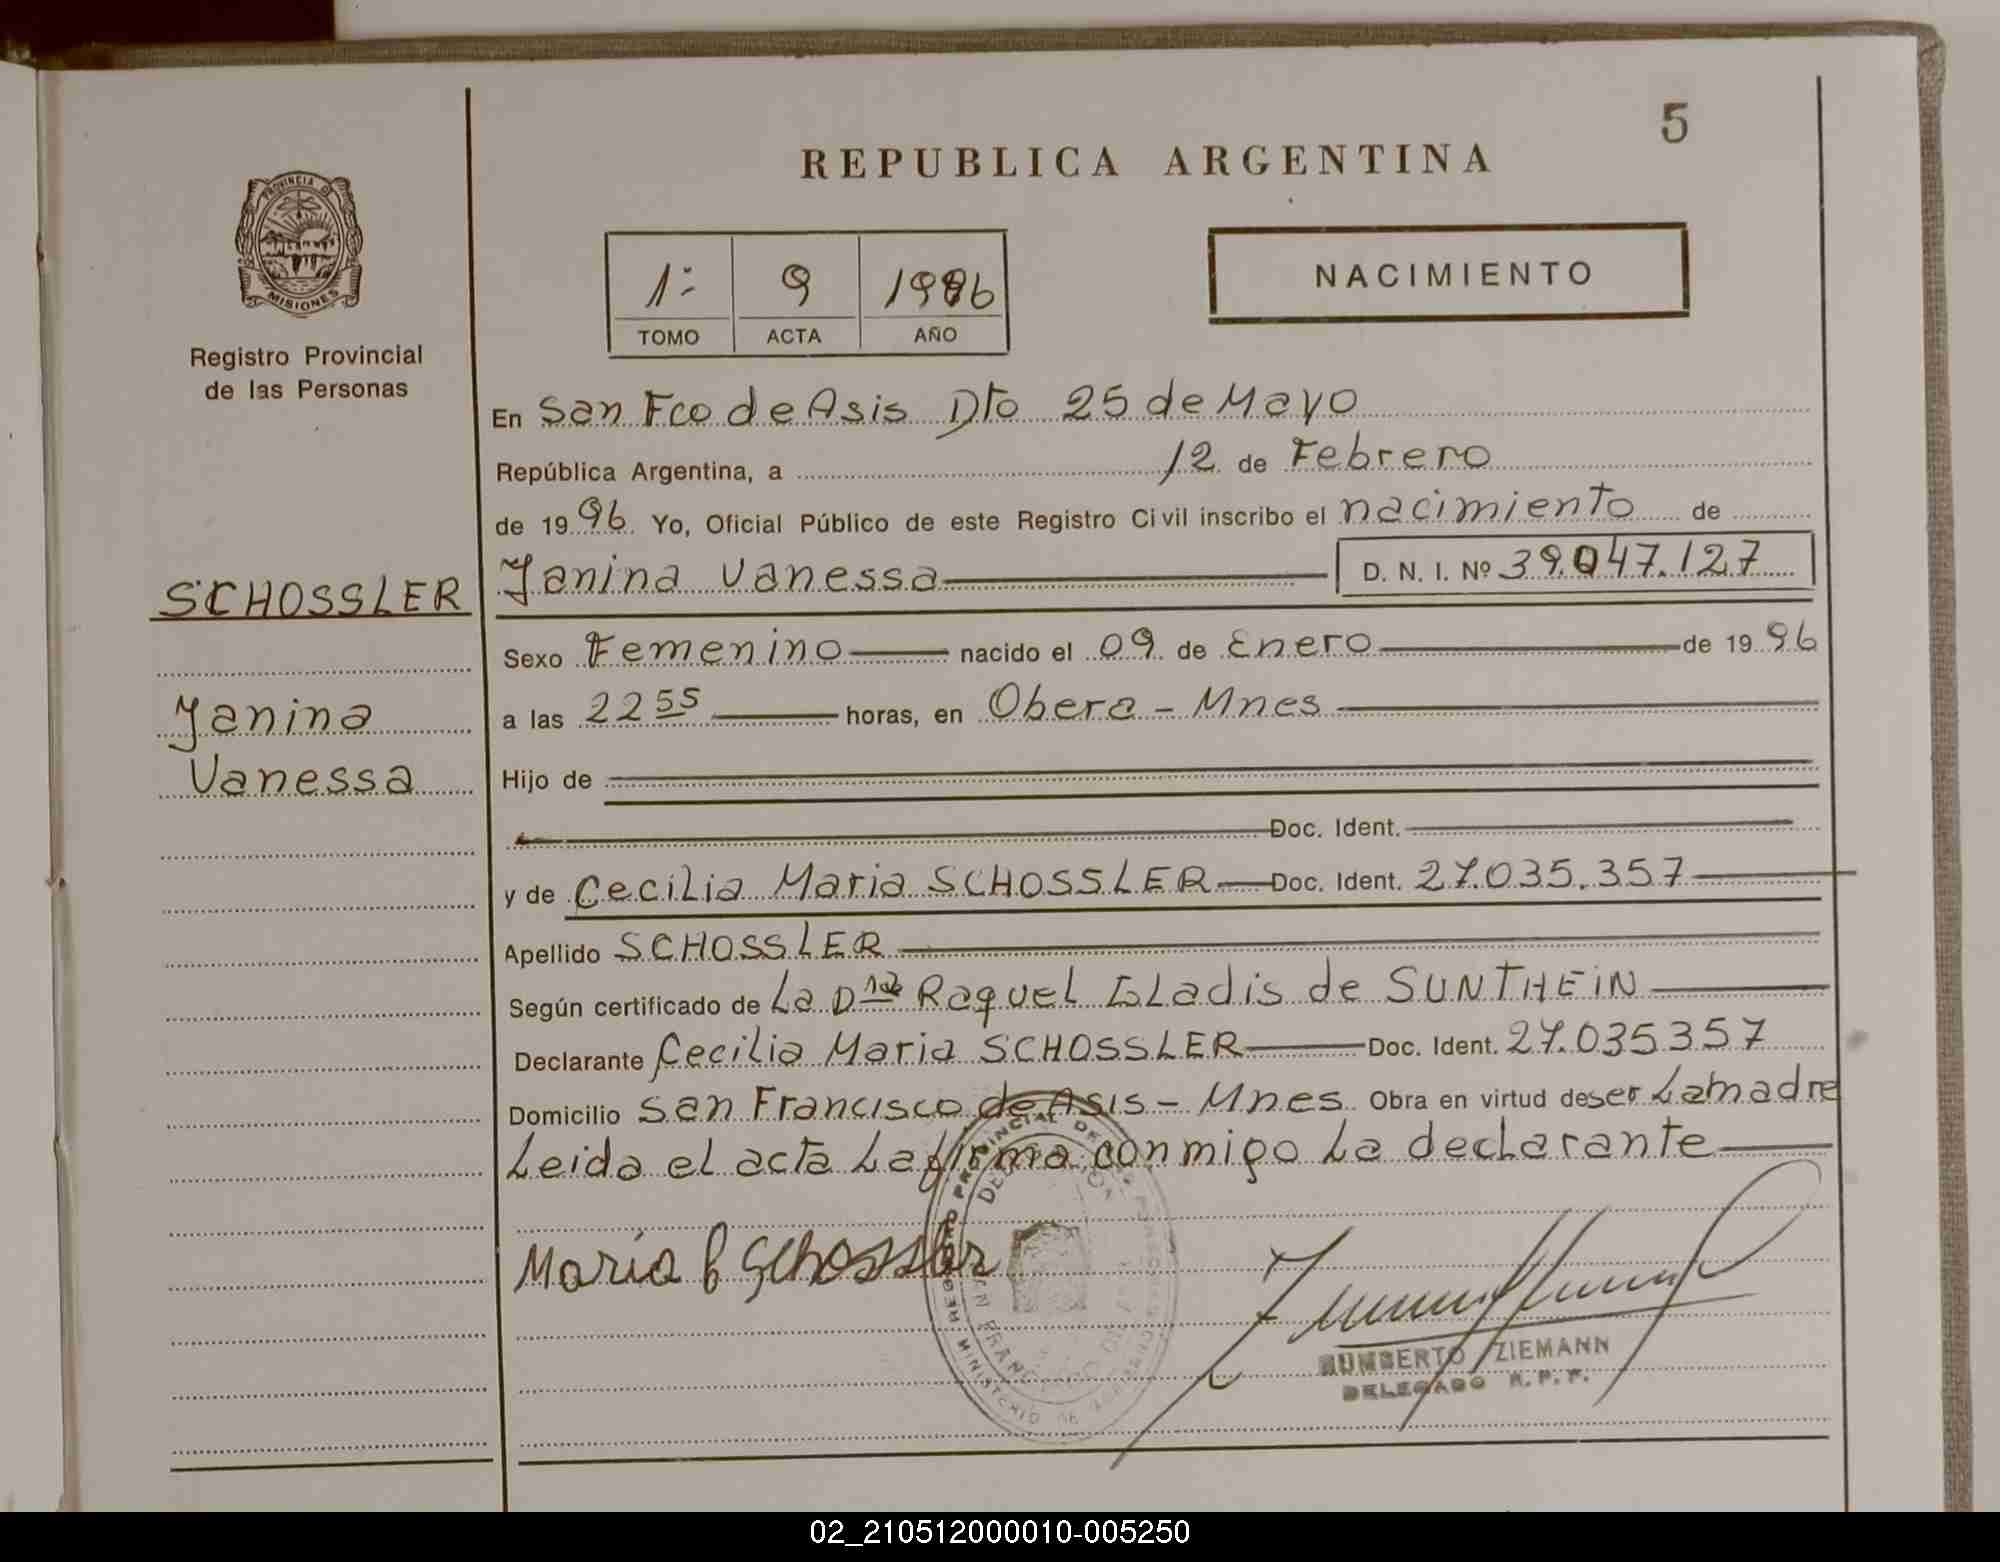 5
REPUBLICA ARGENTINA
PROVINCIA D
MISIONES
Registro Provincial
de las Personas
1: 9 1996
TOMO ACTA AÑO
NACIMIENTO
En San Fco de Asis Dto 25 de Mayo
República Argentina, a 12 de Febrero
de 1996 Yo, Oficial Público de este Registro Civil inscribo el nacimiento de
SCHOSSLER
Janina Vanessa D. N. I. Nº 39.047.127
Sexo Femenino nacido el 09 de Enero de 1996
Janina
a las 22 55 horas, en Obera - Mnes
Vanessa
Hijo de
Doc. Ident.
y de Cecilia Maria SCHOSSLER Doc. Ident. 27.035.357
Apellido SCHOSSLER
Según certificado de La Dra Raquel Gladis de SUNTHEIN
Declarante Cecilia Maria SCHOSSLER Doc. Ident. 27.035357
Domicilio San Francisco de Asis - Mnes Obra en virtud de ser La madre
Leida el acta La firma conmigo La declarante
Maria C Schossler
HUMBERTO ZIEMANN
DELEGADO R. P. P.
02_210512000010-005250